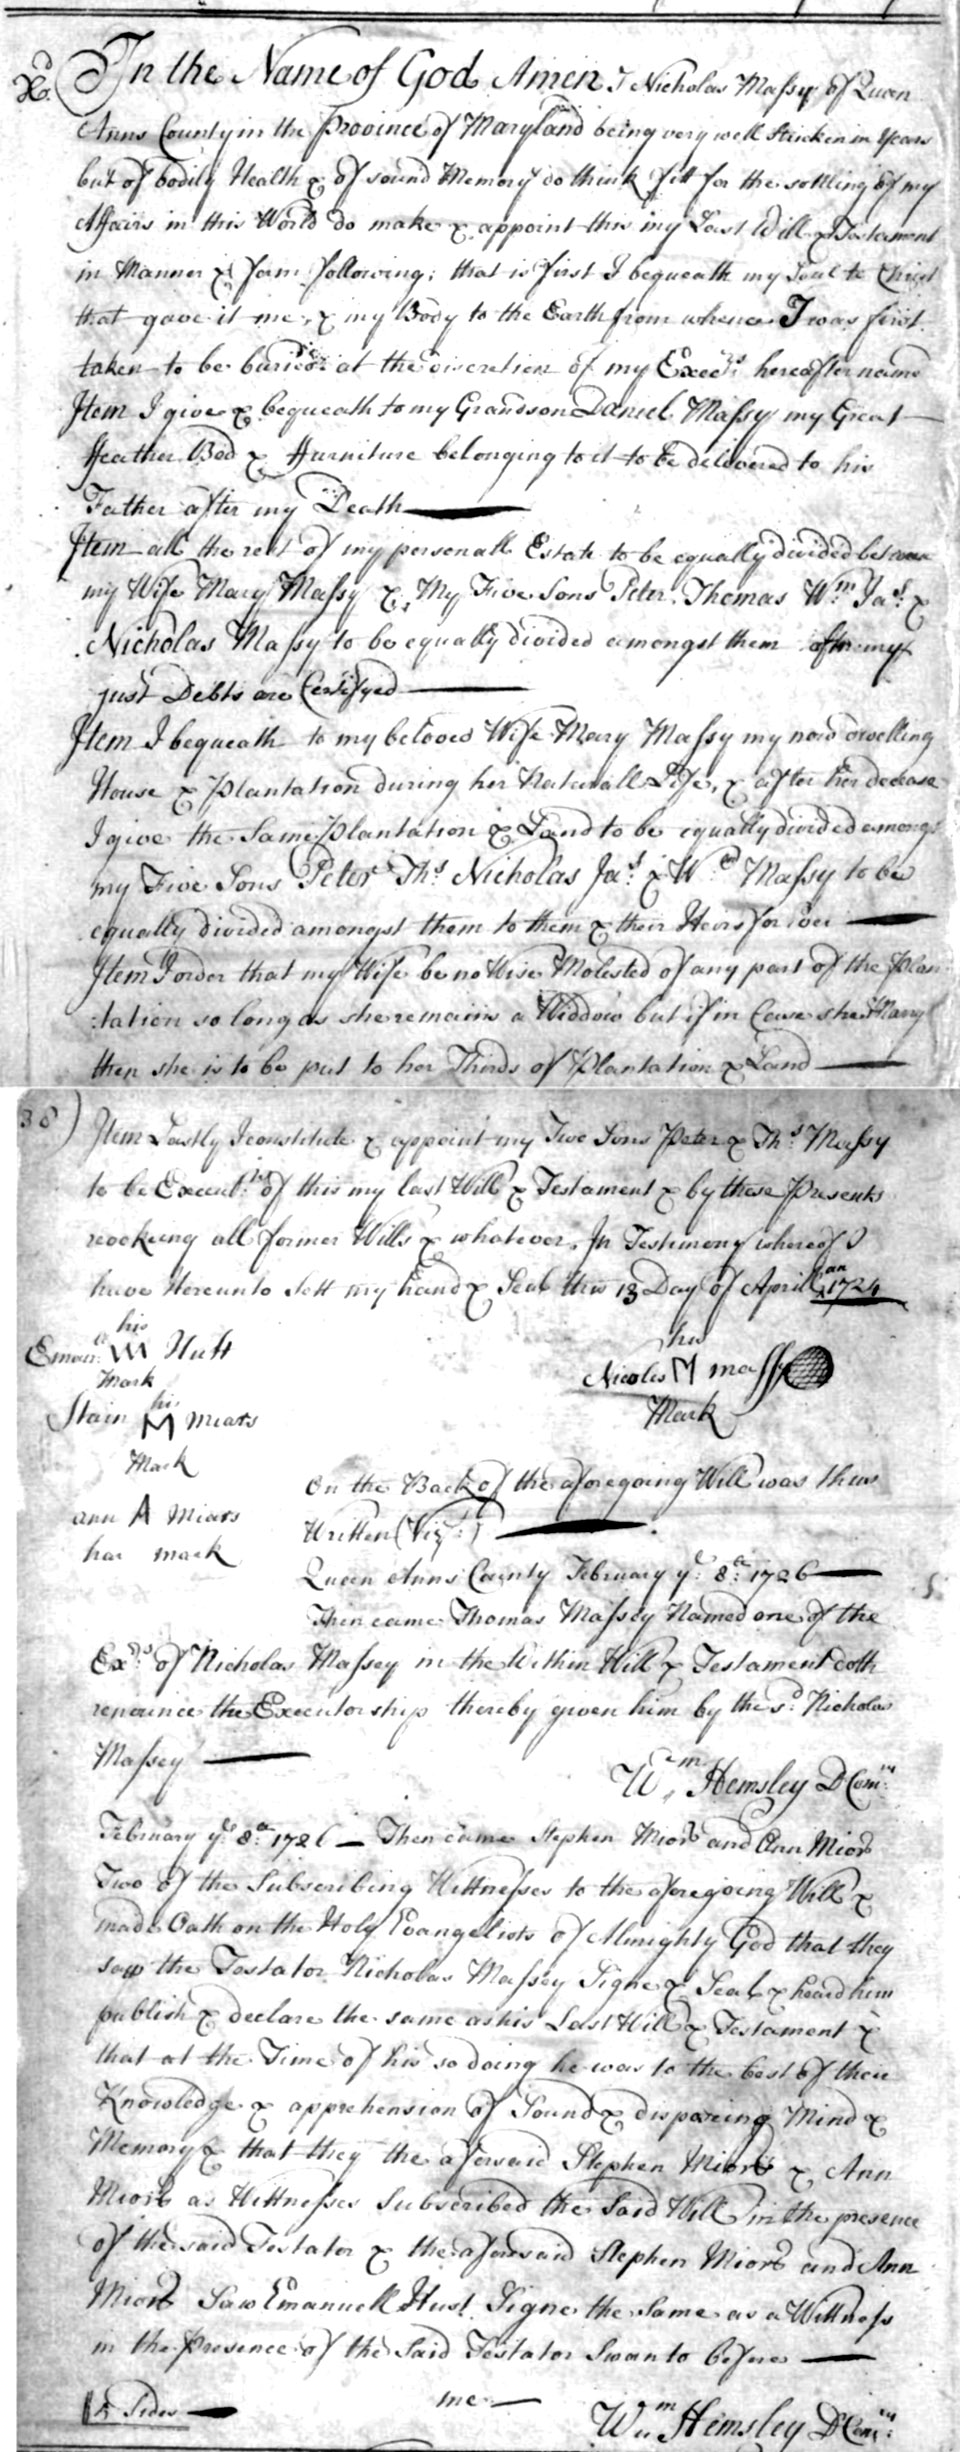 In the Name of God Amen I Nicholas Massy of Queen
Anns County in the Province of Maryland being very well Stricken in Years
but of bodily Health & of sound Memory do think fitt for the settling of my
Affairs in this World do make & appoint this my Last Will & Testament
in Manner & form following; that is first I bequeath my Soul to Christ
that gave it me, & my Body to the Earth from whence I was first
taken to be buried at the discretion of my Exec.rs hereafter named
Item I give & bequeath to my Grandson Daniel Massy my Great
ffeather Bed & ffurniture belonging to it to be delivered to his
Father after my Death
Item all the rest of my personall Estate to be equally divided between
my Wife Mary Massy & My Five Sons Peter Thomas Wm. Jas. &
Nicholas Massy to be equally divided amongst them after my
just Debts are
Item I bequeath to my beloved Wife Mary Massy my now dwelling
House & Plantation during her Naturall Life, & after her decease
I give the Same Plantation & Land to be equally divided amongst
my Five Sons Peter Ths. Nicholas Jas. & Wm. Massy to be
equally divided amongst them to them & their Heirs for Ever
Item I order that my Wife be no Wise Molested of any part of the Plan
:tation so long as she remains a Widdow but if in Case she Marry
then she is to be put to her Thirds of Plantation & Land
38)
Item Lastly I constitute & appoint my Two Sons Peter & Ths. Massy
to be Execut.rs of this my last Will & Testament & by these Presents
revokeing all former Wills & whatever. In Testimony whereof I
have Hereunto Sett my hand & Seal this 13 Day of Aprill an 1724
his
Eman: M Hust
Mark
his
Nicoles M massy
Mark
his
Stain M miars
Mark
ann A Miars
har mark
On the Back of the aforegoing Will was thus
Written (Vizt:)
Queen Anns County February ye 8th: 1726
Then came Thomas Massey Named one of the
Exrs: of Nicholas Massey in the Within Will & Testament doth
renounce the Executorship thereby given him by the sd. Nicholas
Massey
Wm. Hemsley D Comry:
February ye 8th: 1726 Then came Stephen Miors and Ann Miors
Two of the Subscribing Wittnesses to the aforegoing Will &
made Oath on the Holy Evangelists of Almighty God that they
saw the Testator Nicholas Massey Signe & Seal & heard him
publish & declare the same as his Last Will & Testament &
that at the Time of his so doing he was to the best of their
Knowledge & apprehension of Sound & disposeing Mind &
Memory & that they the aforsaid Stephen Miors & Ann
Miors as Wittnesses Subscribed the Said Will in the presence
of the said Testator & the aforesaid Stephen Miors and Ann
Miors Saw Emanuell Hust Signe the Same as a Wittness
in the Presence of the Said Testator Sworn to before
me
Sides
Wm. Hemsley D Comry: